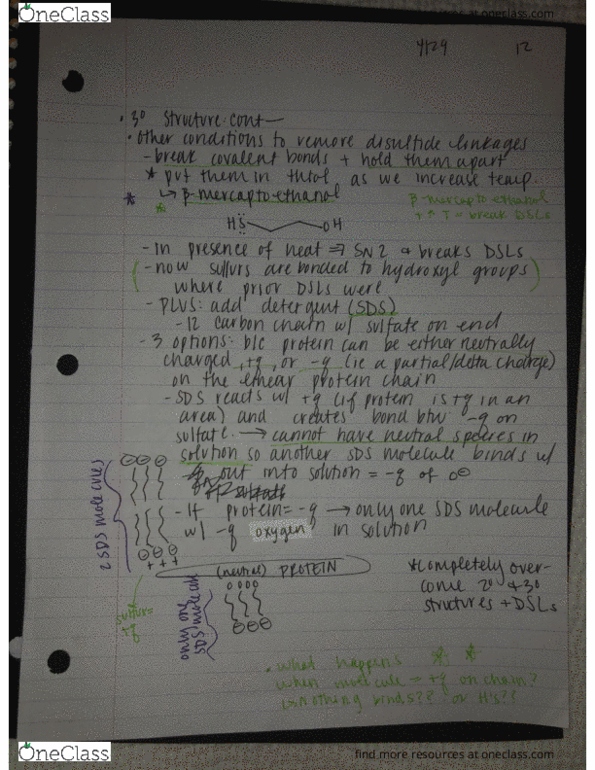 OneClass
find more resources at oneclass.com
4/29 12
· 3° structure cont—
· other conditions to remove disulfide linkages
- break covalent bonds + hold them apart
* put them in thiol as we increase temp.
* * ↳ β-mercaptoethanol
β mercaptoethanol
+ ↑ T = break DSLs
HS OH
- in presence of heat ⇒ SN2 & breaks DSLs
(- now sulfurs are bonded to hydroxyl groups
where prior DSLs were)
- PLUS: add detergent (SDS)
- 12 carbon chain w/ sulfate on end
- 3 options: b/c protein can be either neutrally
charged, +q, or -q (ie a partial/delta charge)
on the linear protein chain
- SDS reacts w/ +q (if protein is +q in an
area) and creates bond btw -q on
sulfate. → cannot have neutral species in
solution so another SDS molecule binds w/
out into solution = -q of O⊖
- If protein = -q → only one SDS molecule
w/ -q oxygen in solution
2 SDS molecules
⊖ ⊖ ⊖
⊖ ⊖ ⊖
+ + +
(neutral) PROTEIN
sulfur=
+q
only one
SDS molecule
0 0 0 0
⊖ ⊖ ⊖
*completely over-
come 2° & 3°
structures + DSLs
· what happens * *
when molecule = +q on chain?
is nothing binds?? or H's??
OneClass
find more resources at oneclass.com